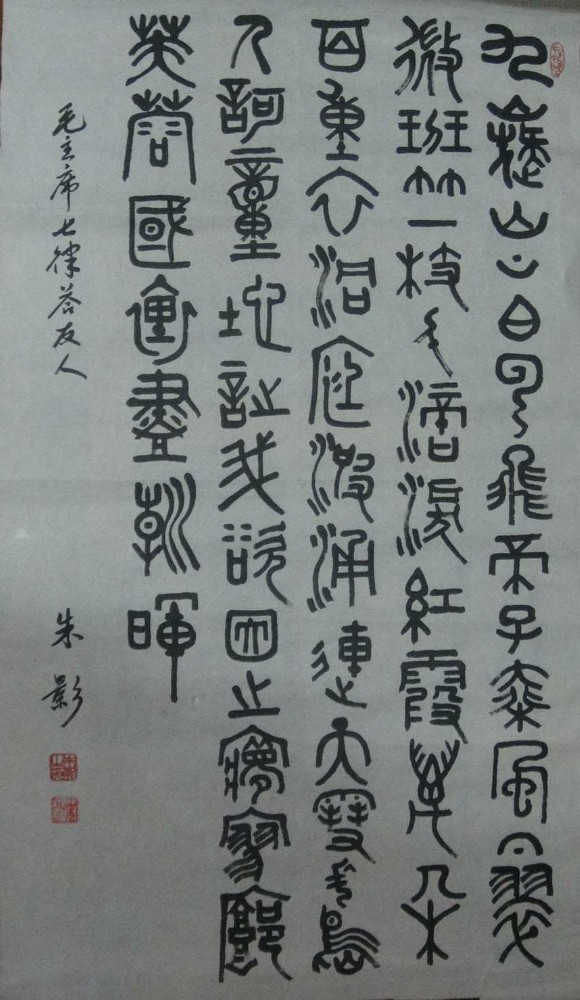 九嶷山上白雲飛帝子乘風下翠
微斑竹一枝千滴淚紅霞萬朵
百重衣洞庭波涌連天雪長島
人歌動地詩我欲因之夢寥廓
芙蓉國裏盡朝暉
毛主席七律答友人
朱影